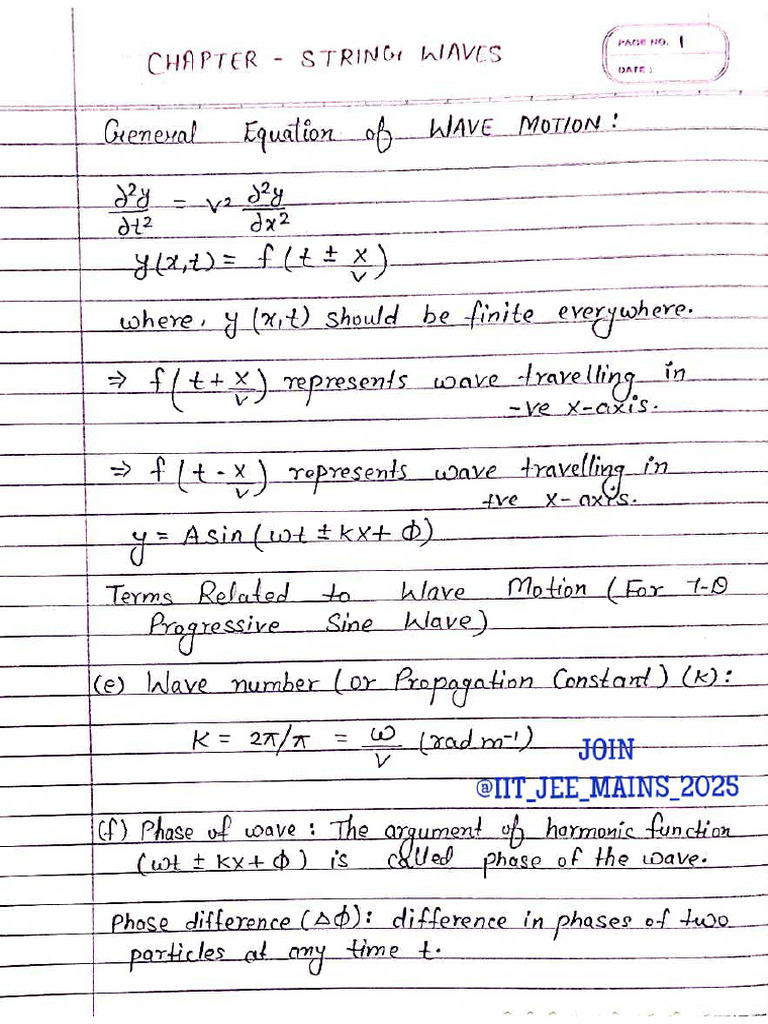 CHAPTER - STRING WAVES
PAGE NO. 1
DATE :
General Equation of WAVE MOTION :
∂²y/∂t² = v² ∂²y/∂x²
y(x,t) = f(t ± x/v)
where, y (x,t) should be finite everywhere.
⇒ f(t + x/v) represents wave travelling in
-ve x-axis.
⇒ f(t - x/v) represents wave travelling in
+ve x-axis.
y = A sin(ωt ± kx + φ)
Terms Related to Wave Motion (For 1-D
Progressive Sine Wave)
(e) Wave number (or Propagation Constant) (k) :
K = 2π/π = ω/v (rad m⁻¹)
JOIN
@IIT_JEE_MAINS_2025
(f) Phase of wave : The argument of harmonic function
(ωt ± kx + φ) is called phase of the wave.
Phase difference (Δφ) : difference in phases of two
particles at any time t.